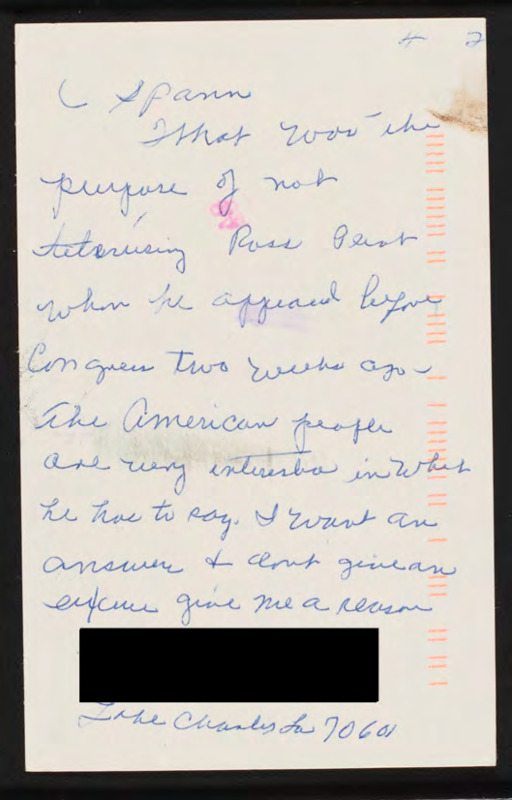 C Spann
What was the
purpose of not
televising Ross Perot
when he appeared before
Congress two weeks ago
The American people
are very interested in what
he has to say. I want an
answer & dont give an
excuse give me a reason
Lake Charles La 70601